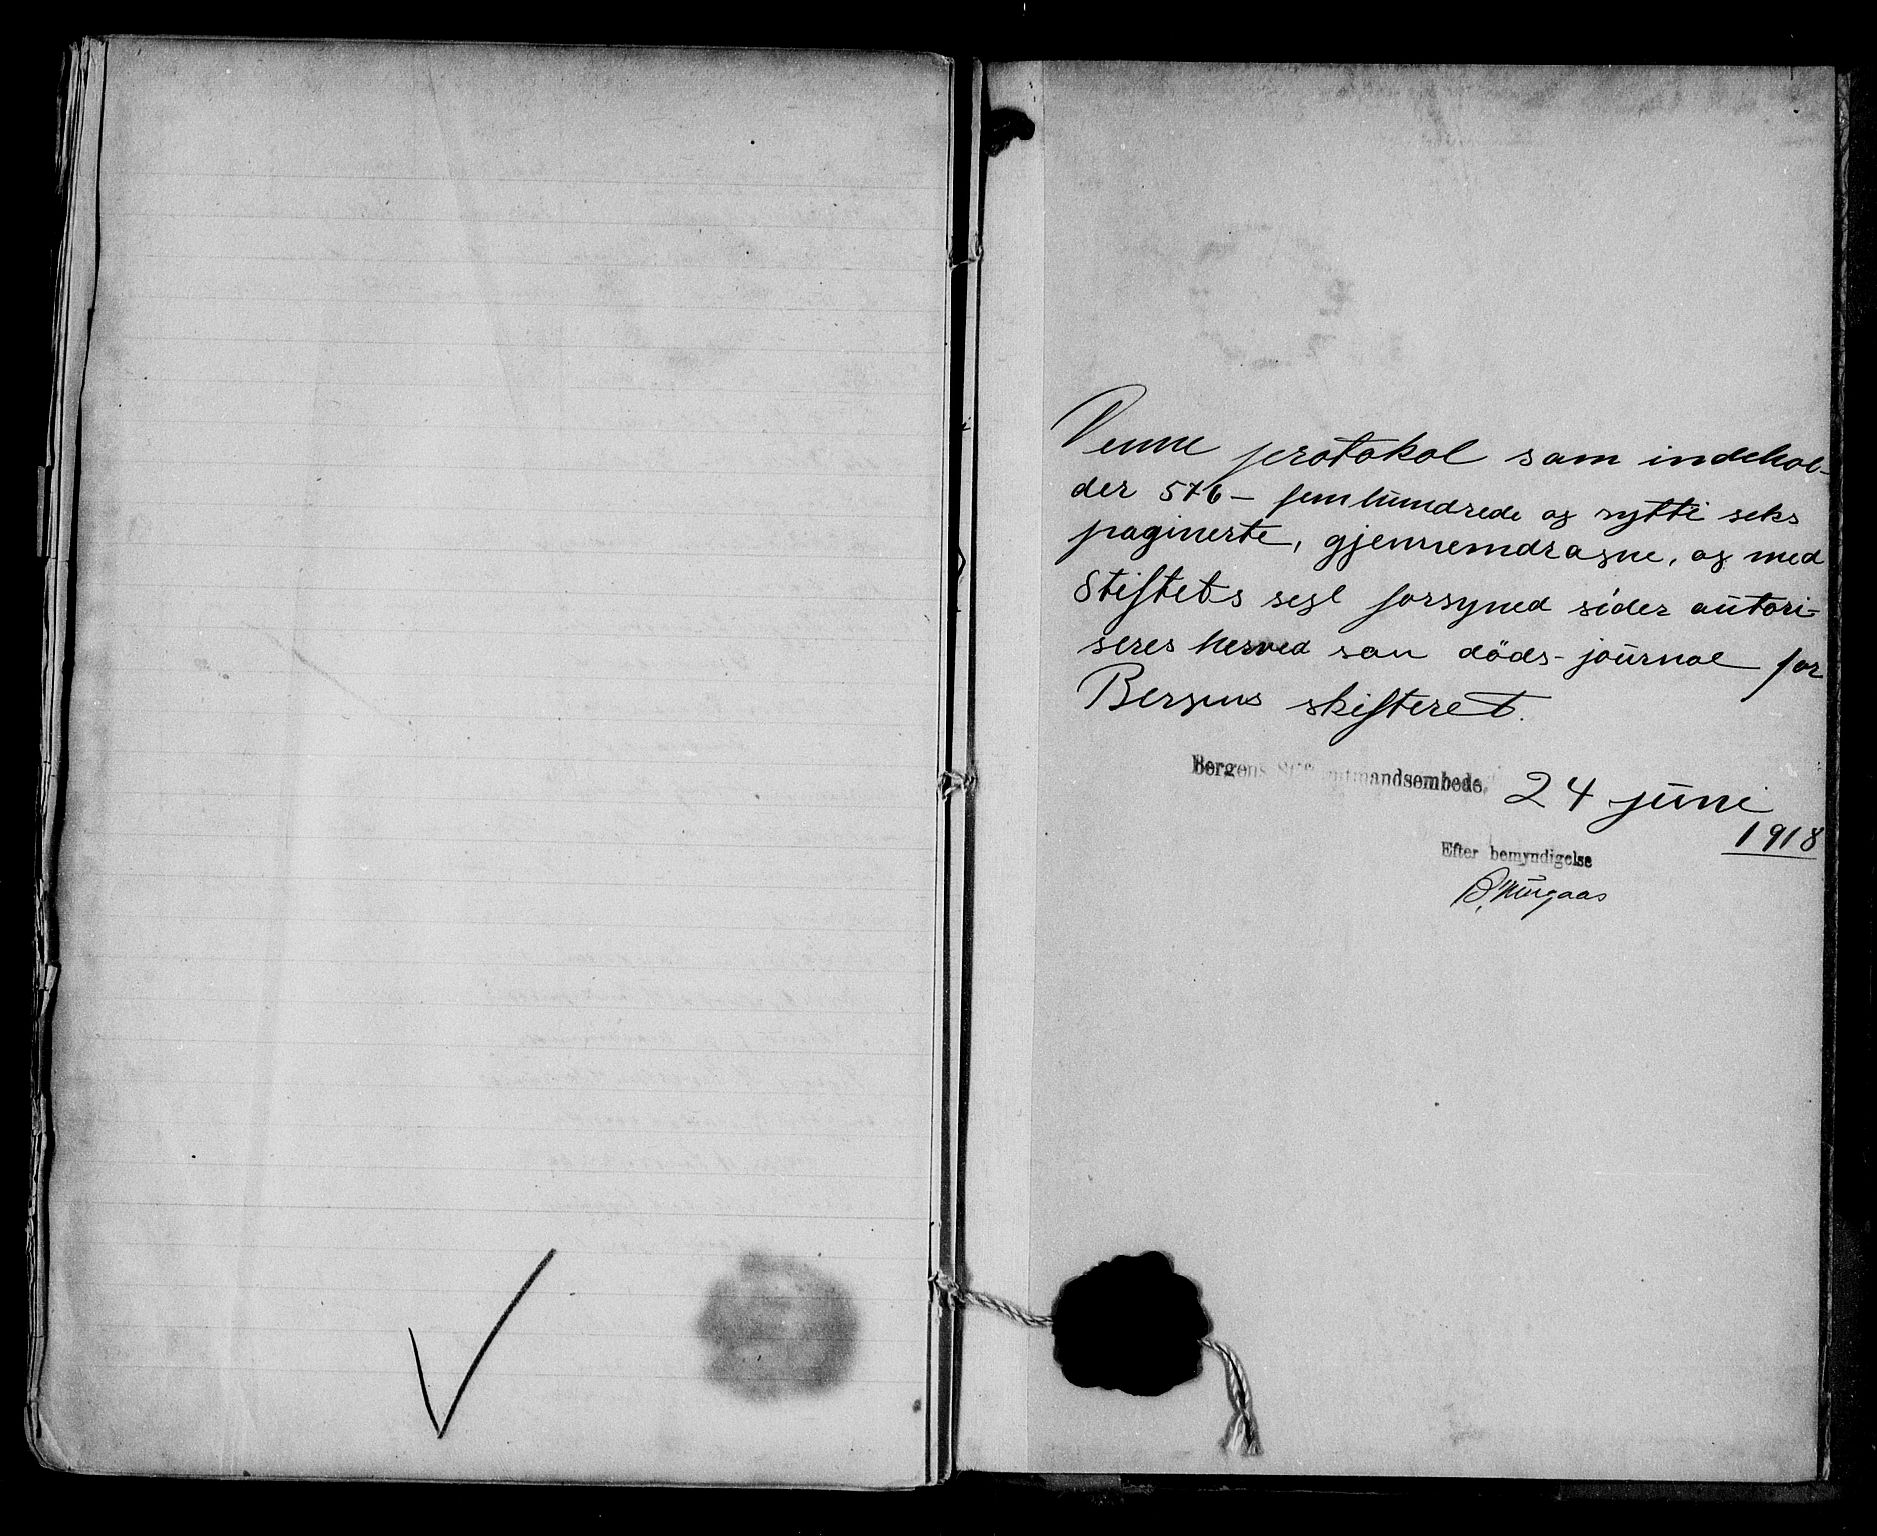 Denne protokol som indehol-
der 576 - femhundrede og sytti seks
paginerte, gjennemdragne, og med
Stiftets segl forsyned sider autori-
seres herved som döds-journal for
Bergens skifteret.
Bergens Stiftamtmandsembede, 24 juni
1918
Efter bemyndigelse